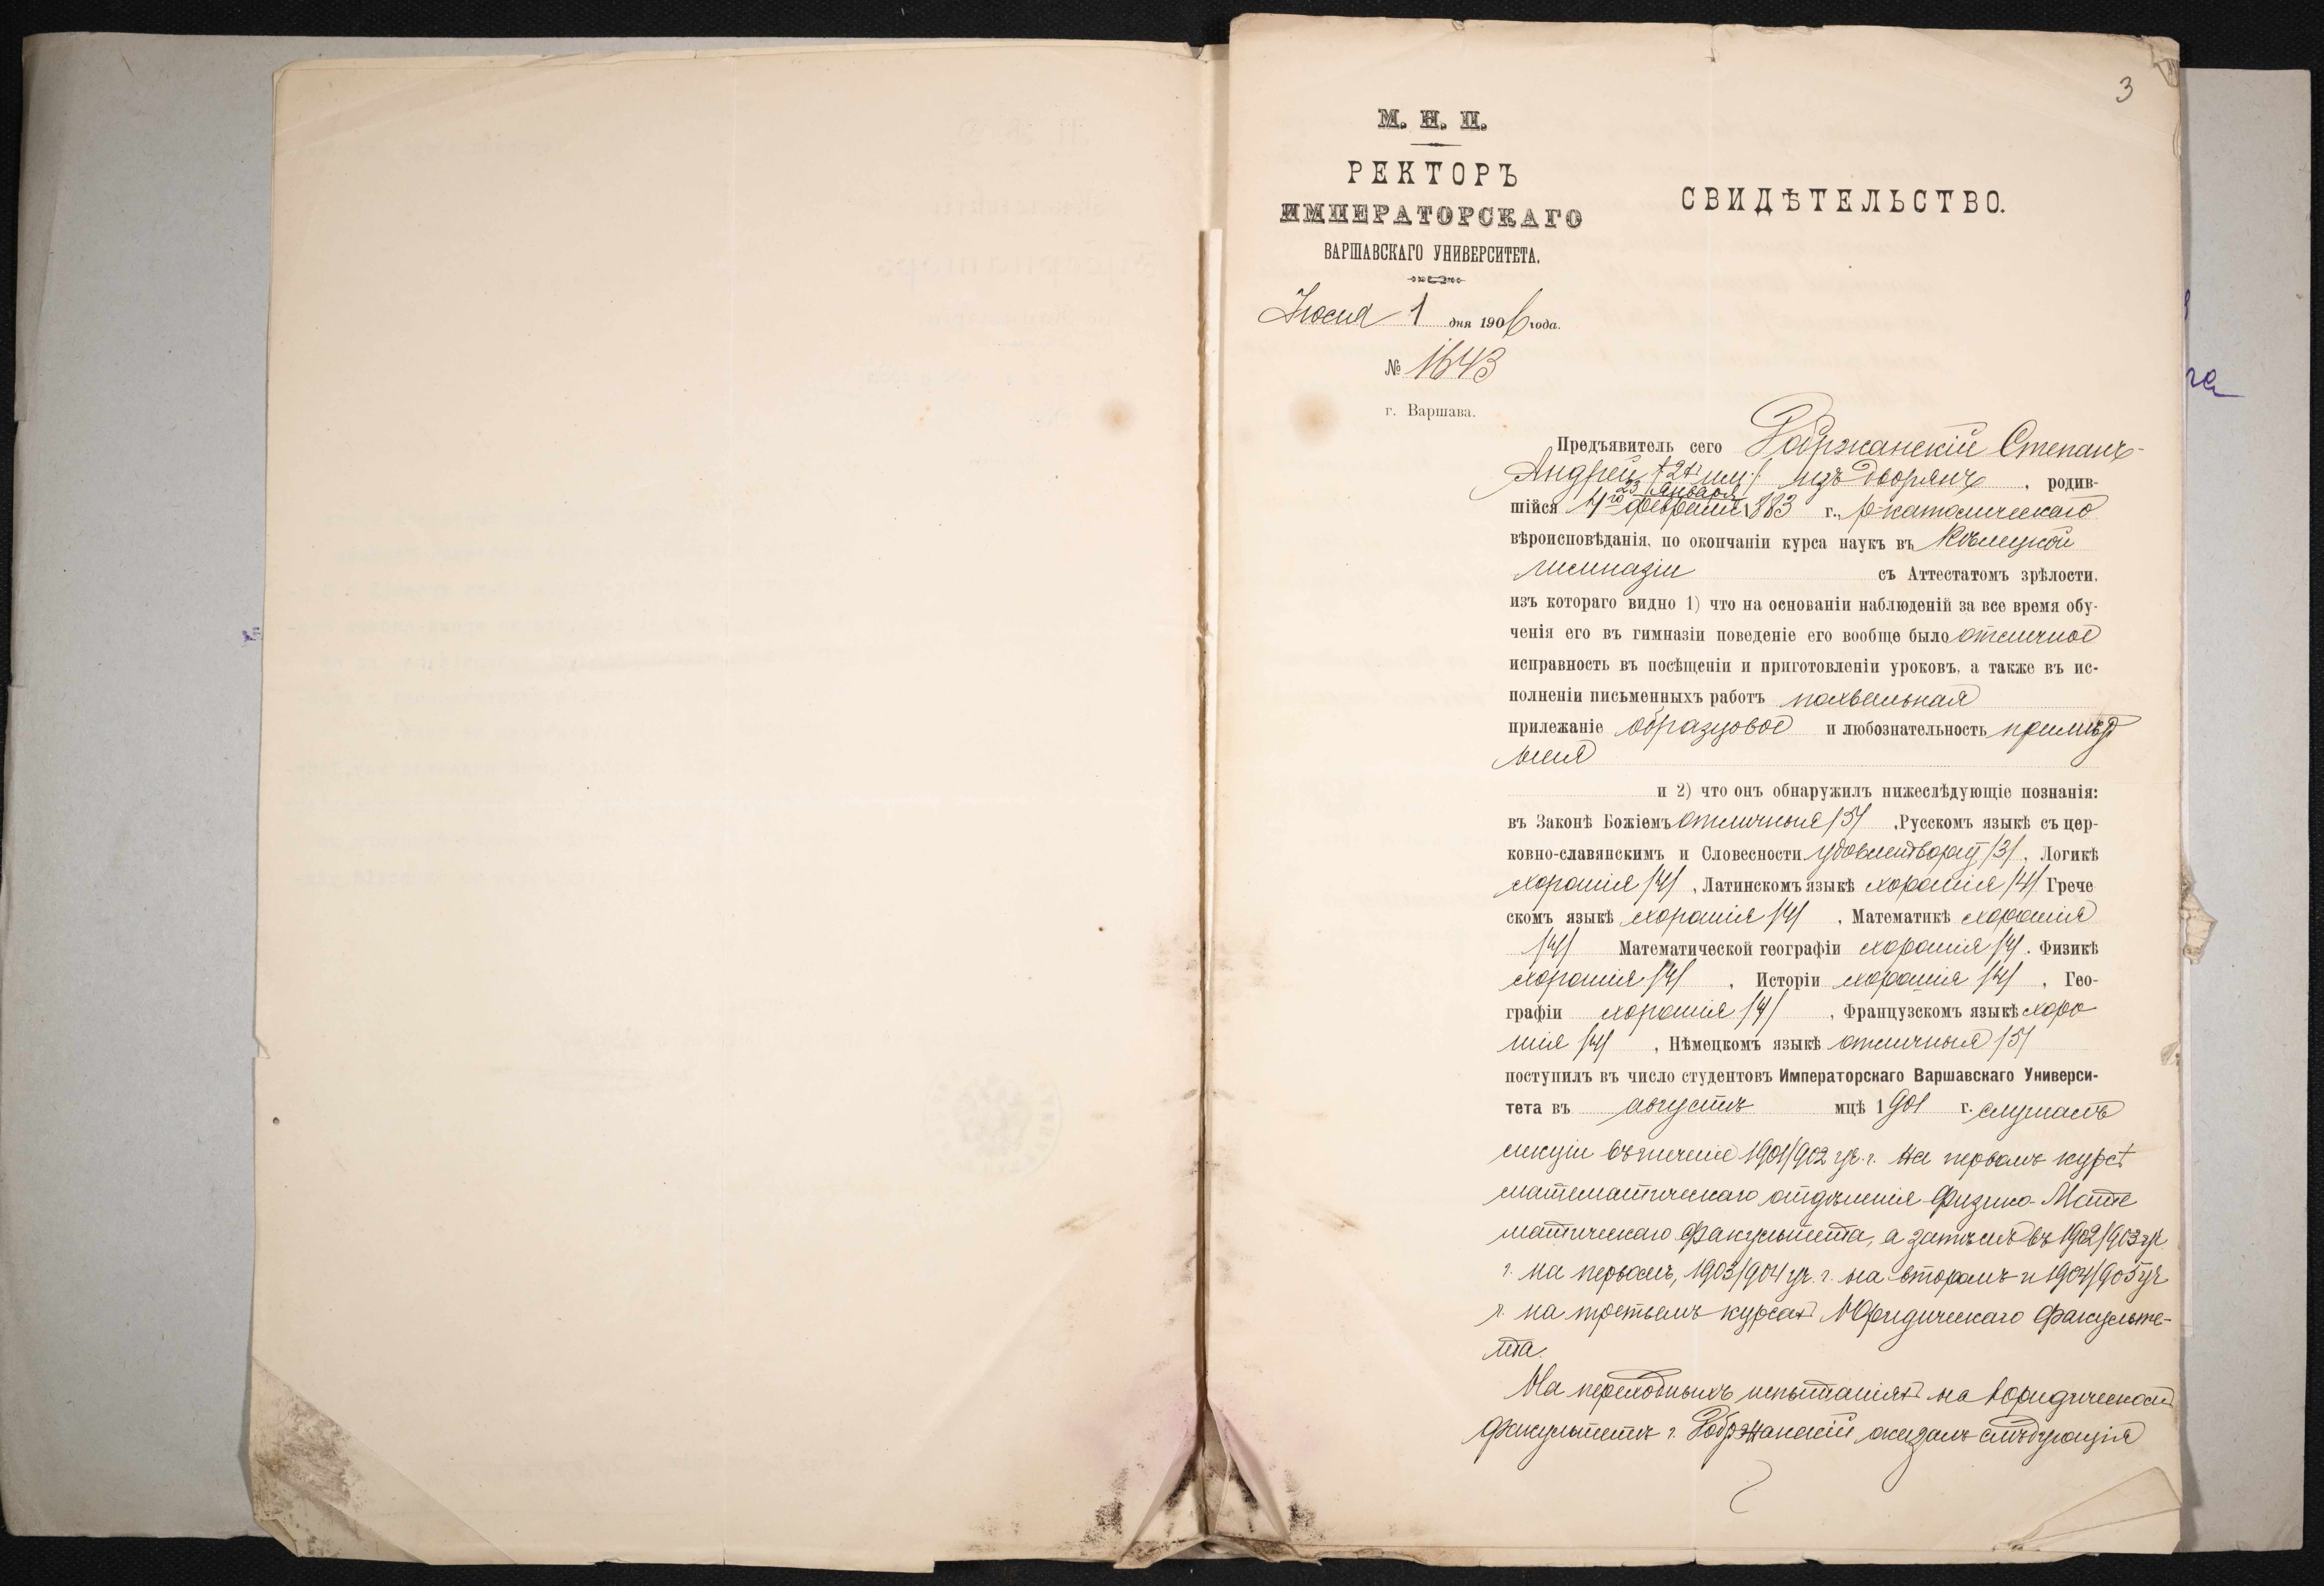 3
М. Н. П.
РЕКТОРЪ
ИМПЕРАТОРСКАГО
ВАРШАВСКАГО УНИВЕРСИТЕТА.
1 дня 1906 года.
№ 1643
г. Варшава.
СВИДѢТЕЛЬСТВО.
Предъявитель сего Добржанскій Степанъ-
Андрей /2хъ им./ изъ дворянъ, родив-
23 Января
шійся 4го февраля 1883 г., р-католическаго
вѣроисповѣданія, по окончаніи курса наукъ въ Кѣлецкой
гимназіи съ Аттестатомъ зрѣлости,
изъ котораго видно 1) что на основаніи наблюденій за все время обу-
ченія его въ гимназіи поведеніе его вообще было отличное
исправность въ посѣщеніи и приготовленіи уроковъ, а также въ ис-
полненіи письменныхъ работъ похвальная
прилежаніе образцовое и любознательность
и 2) что онъ обнаружилъ нижеслѣдующіе познанія:
въ Законѣ Божіемъ отличныя /5/, Русскомъ языкѣ съ цер-
ковно-славянскимъ и Словесности удовлетворит /3/, Логикѣ
хорошія /4/, Латинскомъ языкѣ хорошія /4/ Грече
скомъ языкѣ хорошія /4/, Математикѣ хорошія
/4/ Математической географіи хорошія /4/. Физикѣ
хорошія /4/, Исторіи хорошія /4/, Гео-
графіи хорошія /4/, Французскомъ языкѣ хоро
шія /4/, Нѣмецкомъ языкѣ отличныя /5/
поступилъ въ число студентовъ Императорскаго Варшавскаго Универси-
тета въ августѣ мцѣ 1901 г. слушалъ
лекціи въ теченіе 1901/902 уч. г. на первомъ курсѣ
математическаго отдѣленія Физико-Мате
матическаго факультета, а затѣмъ въ 1902/903 уч.
г. на первомъ, 1903/904 уч. г. на второмъ и 1904/905 уч
г. на третьемъ курсахъ Юридическаго факульте-
та.
На переходныхъ испытаніяхъ на Юридическомъ
факультетѣ г. Добржанскій оказалъ слѣдующія